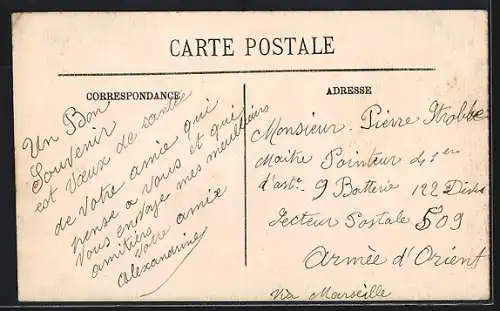 CARTE POSTALE
CORRESPONDANCE
Un Bon
Souvenir
est vœux de santée
de votre amie qui
pense a vous et qui
vous envoye mes meilleurs
amitiers
votre amie
Alexandrine
ADRESSE
Monsieur. Pierre Strobbe
Maitre Pointeur
d'art. 9 Batterie 122
Secteur Postale 509
Armèe d'Orient
Via Marseille